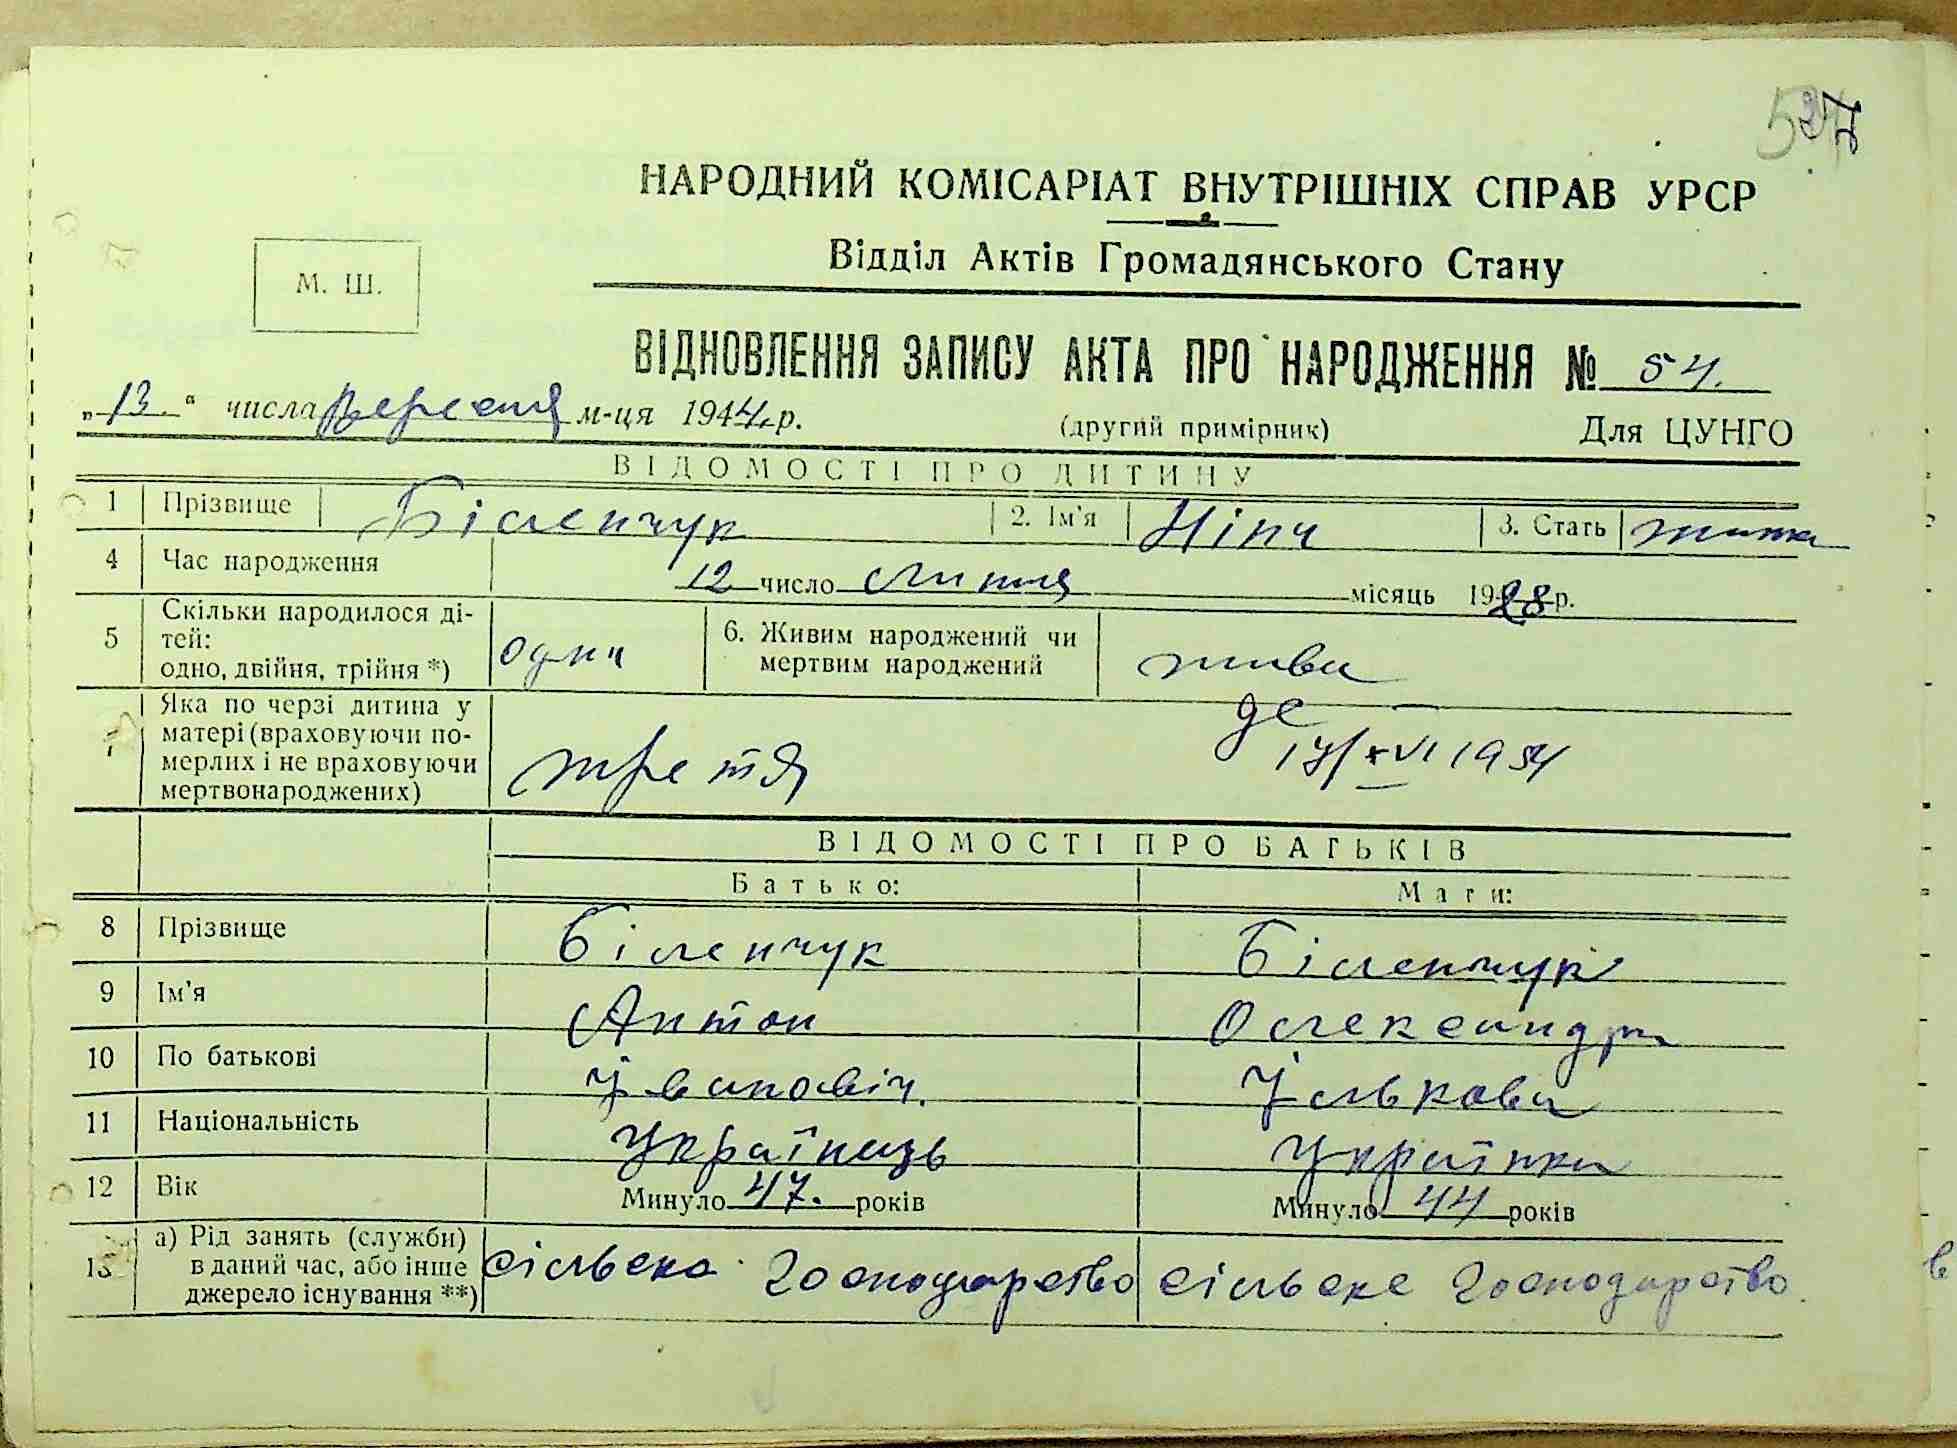 527
НАРОДНИЙ КОМІСАРІАТ ВНУТРІШНІХ СПРАВ УРСР
Відділ Актів Громадянського Стану
М. Ш.
ВІДНОВЛЕННЯ ЗАПИСУ АКТА ПРО НАРОДЖЕННЯ № 54.
„13.“ числа вересня м-ця 1944 р. (другий примірник) Для ЦУНГО
ВІДОМОСТІ ПРО ДИТИНУ
1 Прізвище Біленчук 2. Ім'я Ніна 3. Стать жінка
4 Час народження 12 число липня місяць 1928 р.
5 Скільки народилося ді-
тей:
одно, двійня, трійня *) одна 6. Живим народжений чи
мертвим народжений жива
7 Яка по черзі дитина у
матері (враховуючи по-
мерлих і не враховуючи
мертвонароджених) третя
1954
ВІДОМОСТІ ПРО БАТЬКІВ
Батько: Мати:
8 Прізвище Біленчук Біленчук
9 Ім'я Антон Олександра
10 По батькові Івановіч. Ількова
11 Національність Українець Українка
12 Вік Минуло 47. років Минуло 44 років
13 а) Рід занять (служби)
в даний час, або інше
джерело існування **) сільське господарство сільске господарство